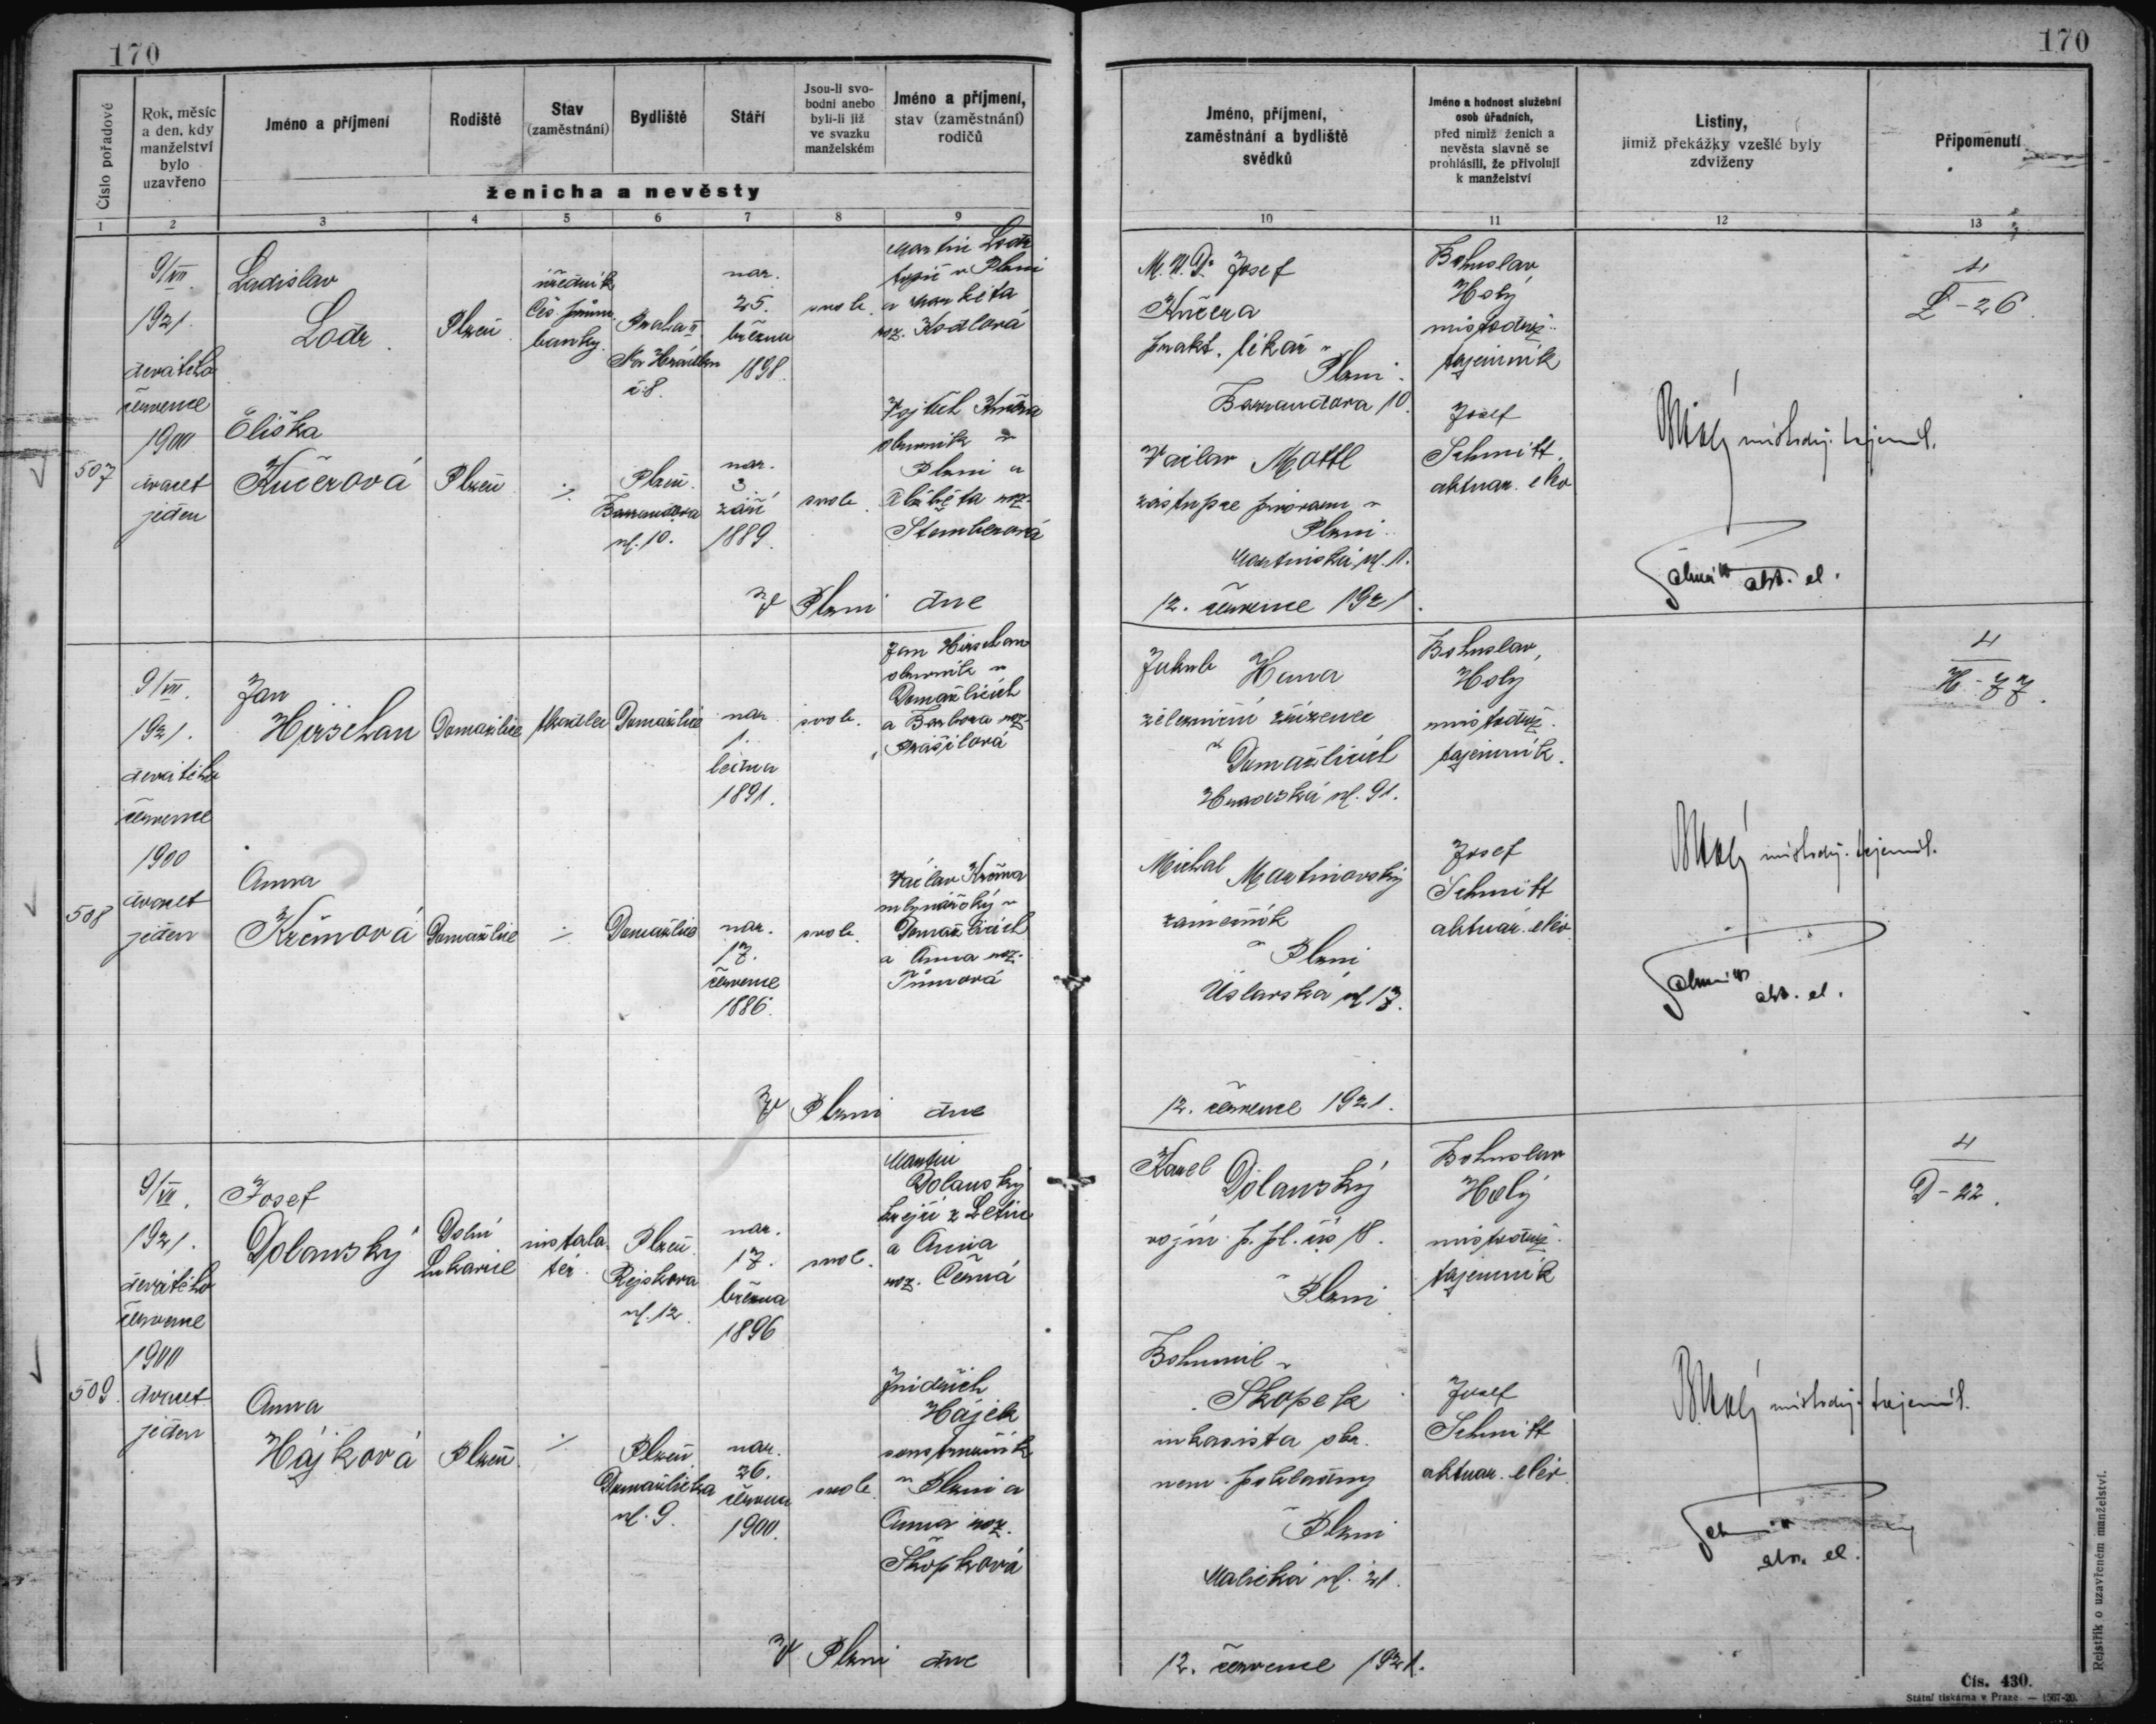 170
170
Číslo pořadové
Rok, měsíc
a den, kdy
manželství
bylo
uzavřeno
Jméno a příjmení
Rodiště
Stav
(zaměstnání)
Bydliště
Stáří
Jsou-li svo-
bodni anebo
byli-li již
ve svazku
manželském
Jméno a příjmení,
stav (zaměstnání)
rodičů
ženicha a nevěsty
Jméno, příjmení,
zaměstnání a bydliště
svědků
Jméno a hodnost služební
osob úřadních,
před nimiž ženich a
nevěsta slavně se
prohlásili, že přivolují
k manželství
Listiny,
jimiž překážky vzešlé byly
zdviženy
Připomenutí
1 2 3 4 5 6 7 8 9 10 11 12 13
507
9/VII.
1921.
devátého
července
1900
dvacet
jeden
Ladislav
Lodr
Plzeň
úředník
Čes. prům.
banky.
Praha II
Na Hrádku
č. 8.
nar.
25.
března
1898.
svob.
Martin Lodr
topič v Plzni
a Markéta
roz. Kodlová
Eliška
Kučerová
Plzeň
./.
Plzeň
Barrandova
ul. 10.
nar.
3
září
1889.
svob.
Vojtěch Kučera
obuvník v
Plzni a
Alžběta roz.
Štemberová
M.U.Dr Josef
Kučera
prakt. lékař v
Plzni.
Barrandova 10.
Václav Mottl
zástupce pivovaru v
Plzni.
Martinská ul. 11.
Bohuslav
Holý
místodrž.
tajemník
Josef
Schmitt
aktuar. elév
BHolý místodrž. tajemník.
Schmitt akt. el.
4
L - 26.
V Plzni dne
12. července 1921.
508
9/VII.
1921.
devátého
července
1900
dvacet
jeden
Jan
Hirschan
Domažlice
tkadlec
Domažlice
nar.
1.
ledna
1891.
svob.
Jan Hirschan
obuvník v
Domažlicích
a Barbora roz.
Prášilová
Anna
Domažlice
./.
Domažlice
nar.
17.
července
1886.
svob.
Václav
mlynářský v
Domažlicích
a Anna roz.
Tůmová
Jakub Hana
železniční zřízenec
v Domažlicích
ul. 91.
Michal Martinovský
zámečník
v Plzni
Úslavská ul 17.
Bohuslav
Holý
místodrž.
tajemník.
Josef
Schmitt
aktuár. elév
BHolý místodrž. tajemník.
Schmitt
akt. el.
4
H - 77.
V Plzni dne
12. července 1921.
509.
9/VII.
1921.
devátého
července
1900
dvacet
jeden
Josef
Dolanský
Dolní
Lukavice
instala-
tér.
Plzeň
Rejskova
ul. 12.
nar.
17.
března
1896
svob.
Martin
Dolanský
krejčí z Letin
a Anna
roz. Černá
Anna
Hájková
Plzeň.
./.
Plzeň
Domažlická
ul. 9.
nar.
26.
června
1900.
svob.
Jindřich
Hájek
soustružník
v Plzni a
Anna roz.
Skopková
Karel
Dolanský
vojín p. pl. čís 18.
v Plzni
Bohumil
Skopek
inkasista okr.
nem. pokladny
v Plzni
Malická ul. 21.
Bohuslav
Holý
místodrž.
tajemník
Josef
Schmitt
aktuar. elév.
BHolý místodrž. tajemník.
Schmitt
akt. el.
4
D - 22.
V Plzni dne
12. července 1921.
Rejstřík o uzavřeném manželství.
Čís. 430.
Státní tiskárna v Praze. — 1567-20.